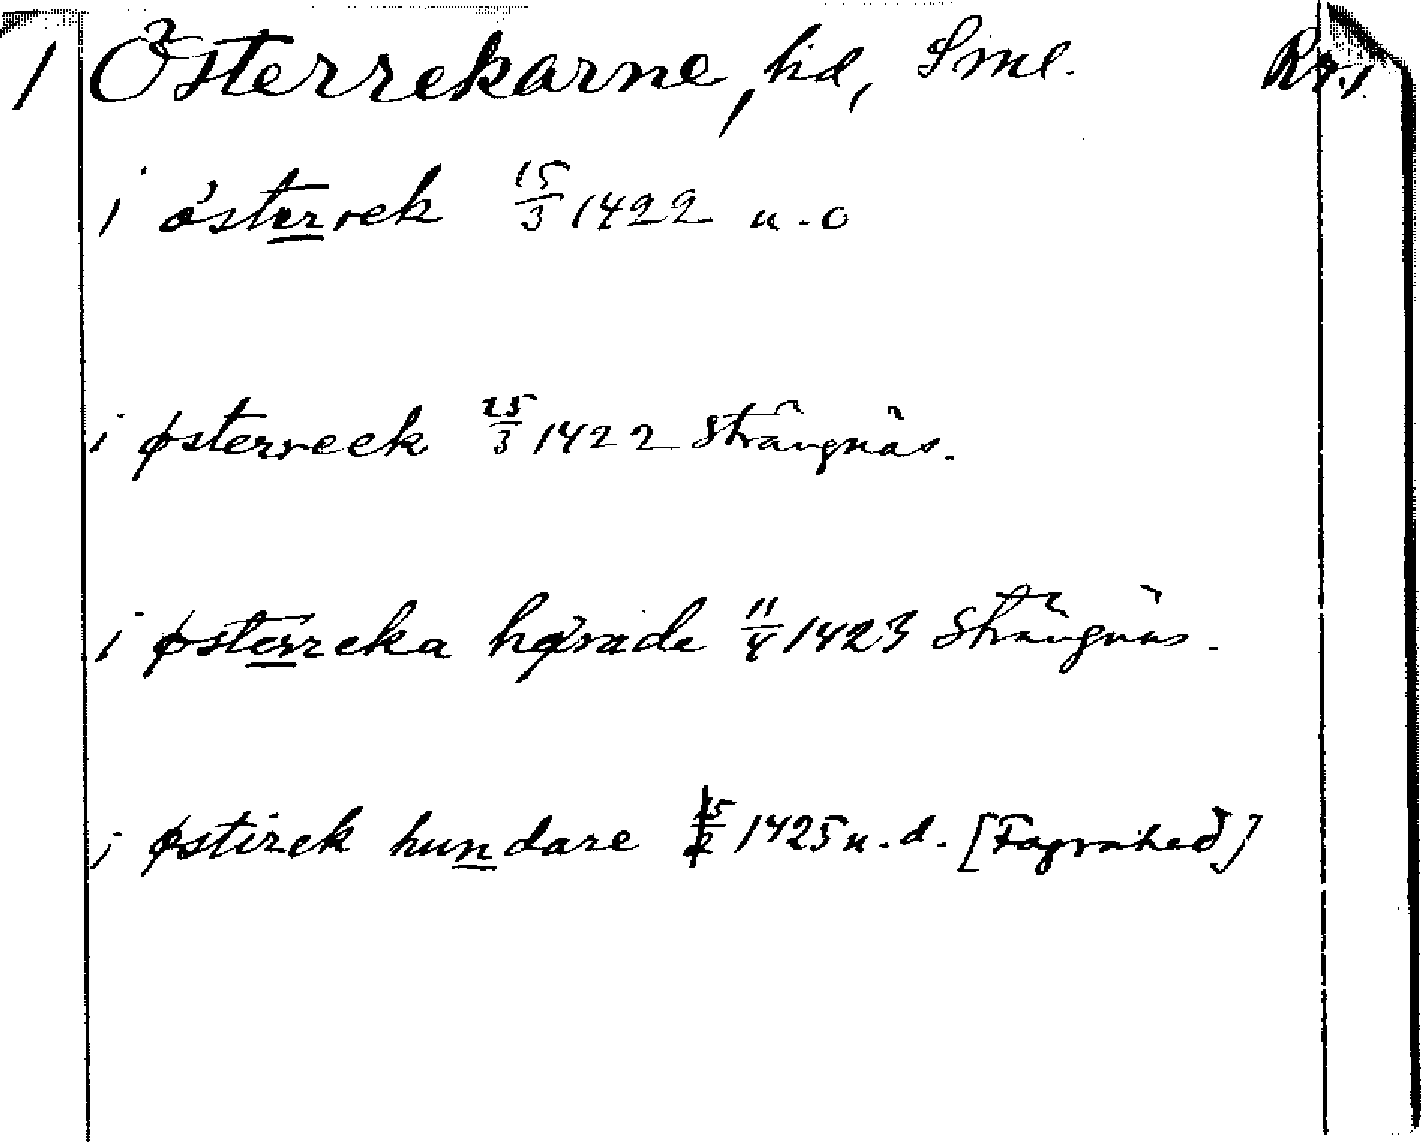 1 Österrekarne, hd, Sml. Rv. 1
i österrek 15/3 1422 u.o
i østerreek 25/3 1422 Strängnäs.
i østerreka hørade 11/4 1423 Strängnäs.
i østirek hundare 1425 u.d.